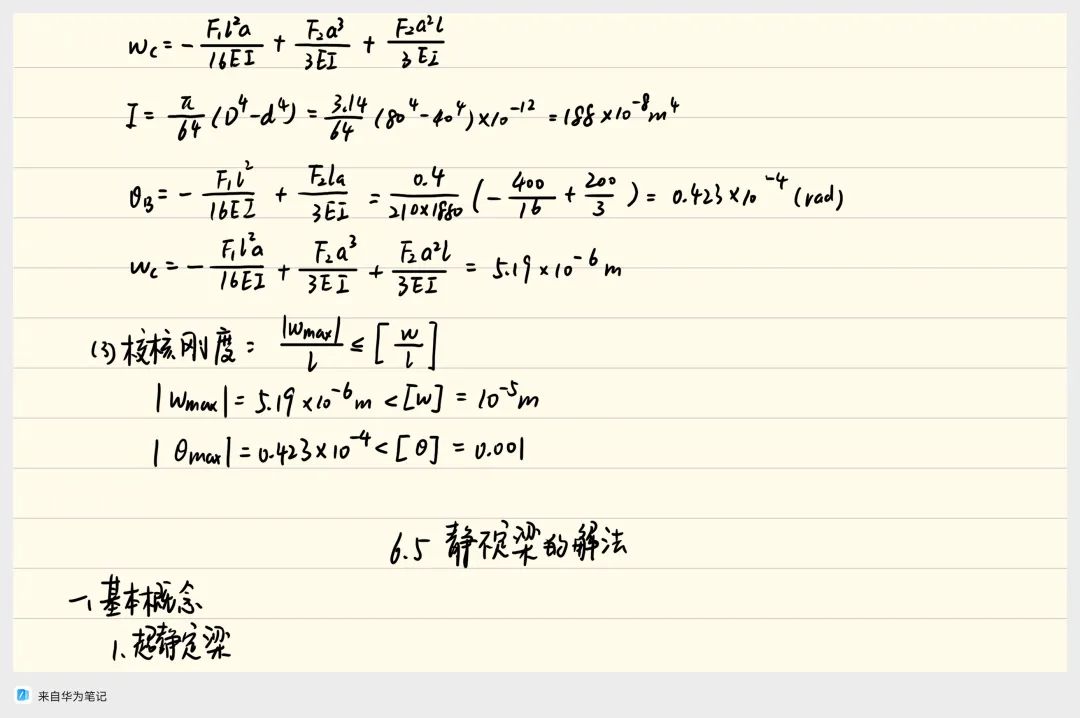 w_C = - F₁l²a/16EI + F₂a³/3EI + F₂a²l/3EI
I = π/64 (D⁴-d⁴) = 3.14/64 (80⁴-40⁴)×10⁻¹² = 188×10⁻⁸m⁴
θ_B = - F₁l²/16EI + F₂la/3EI = 0.4/210×1880 (- 400/16 + 200/3) = 0.423×10⁻⁴(rad)
w_C = - F₁l²a/16EI + F₂a³/3EI + F₂a²l/3EI = 5.19×10⁻⁶m
(3)校核刚度: |w_max|/l ≤ [w/l]
|w_max| = 5.19×10⁻⁶m < [w] = 10⁻⁵m
|θ_max| = 0.423×10⁻⁴ < [θ] = 0.001
6.5 静不定梁的解法
一、基本概念
1、超静定梁
来自华为笔记